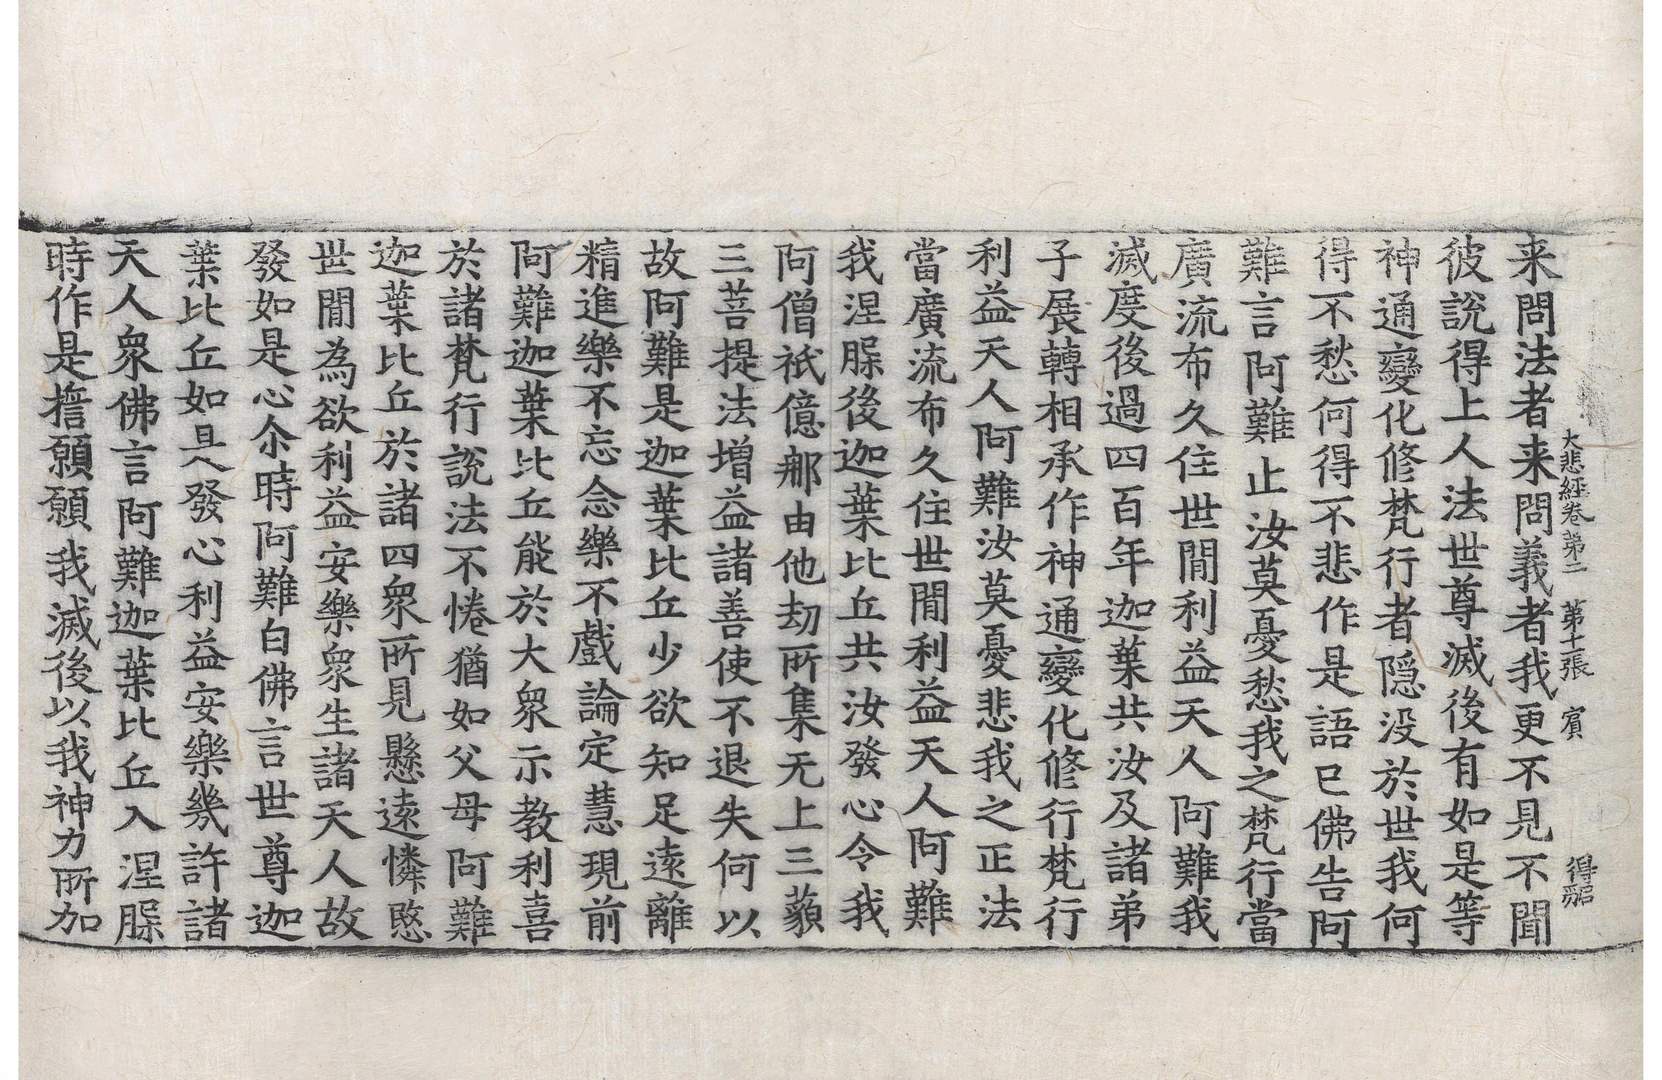 大悲經卷第二 第十一張 賓 得韶
来問法者来問義者我更不見不聞
彼說得上人法世尊滅後有如是等
神通變化修梵行者隱没於世我何
得不愁何得不悲作是語已佛告阿
難言阿難止汝莫憂愁我之梵行當
廣流布久住世間利益天人阿難我
滅度後過四百年迦葉共汝及諸弟
子展轉相承作神通變化修行梵行
利益天人阿難汝莫憂悲我之正法
當廣流布久住世間利益天人阿難
我涅槃後迦葉比丘共汝發心令我
阿僧祇億那由他劫所集无上三藐
三菩提法增益諸善使不退失何以
故阿難是迦葉比丘少欲知足遠離
精進樂不忘念樂不戲論定慧現前
阿難迦葉比丘能於大眾示教利喜
於諸梵行說法不惓猶如父母阿難
迦葉比丘於諸四眾所見懸遠憐愍
世間為欲利益安樂眾生諸天人故
發如是心尒時阿難白佛言世尊迦
葉比丘如是發心利益安樂幾許諸
天人眾佛言阿難迦葉比丘入涅槃
時作是擔願願我滅後以我神力所加